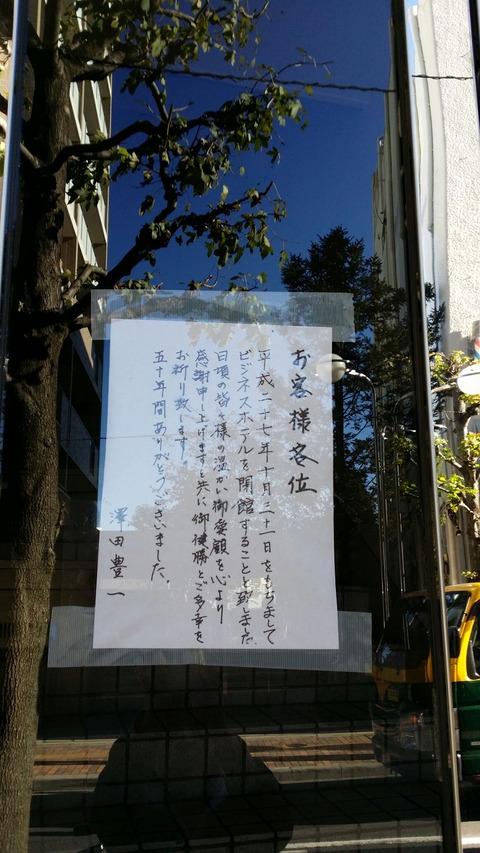 お客様各位
平成二十七年十月三十一日をもちまして
ビジネスホテルを閉館することと致しました。
日頃の皆々様の温かい御愛顧を心より
感謝申し上げますと共に御健勝とご多幸を
お祈り致します。
五十年間ありがとうございました。
澤田豊一